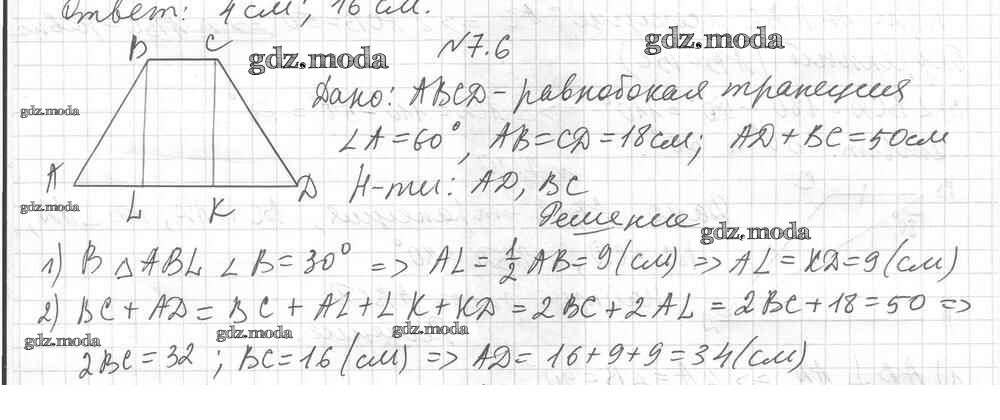 Ответ: 4 см; 16 см.
B C
N7.6
gdz.moda
gdz.moda
gdz.moda
Дано: ABCD - равнобокая трапеция
∠A = 60°, AB = CD = 18 см; AD + BC = 50 см
A L K D
gdz.moda
Н-ти: AD, BC
Решение
gdz.moda
1) В △ABL ∠B = 30° => AL = 1/2 AB = 9 (см) => AL = KD = 9 (см)
2) BC + AD = BC + AL + LK + KD = 2BC + 2AL = 2BC + 18 = 50 =>
gdz.moda gdz.moda gdz.moda
2BC = 32; BC = 16 (см) => AD = 16 + 9 + 9 = 34 (см)